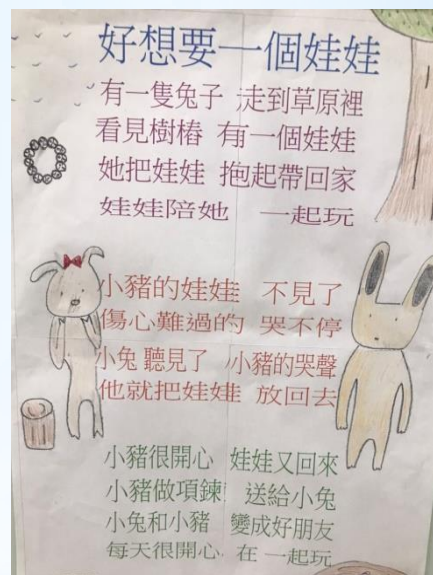 好想要一個娃娃
有一隻兔子 走到草原裡
看見樹樁 有一個娃娃
她把娃娃 抱起帶回家
娃娃陪她 一起玩
小豬的娃娃 不見了
傷心難過的 哭不停
小兔 聽見了 小豬的哭聲
他就把娃娃 放回去
小豬很開心 娃娃又回來
小豬做項鍊 送給小兔
小兔和小豬 變成好朋友
每天很開心 在一起玩